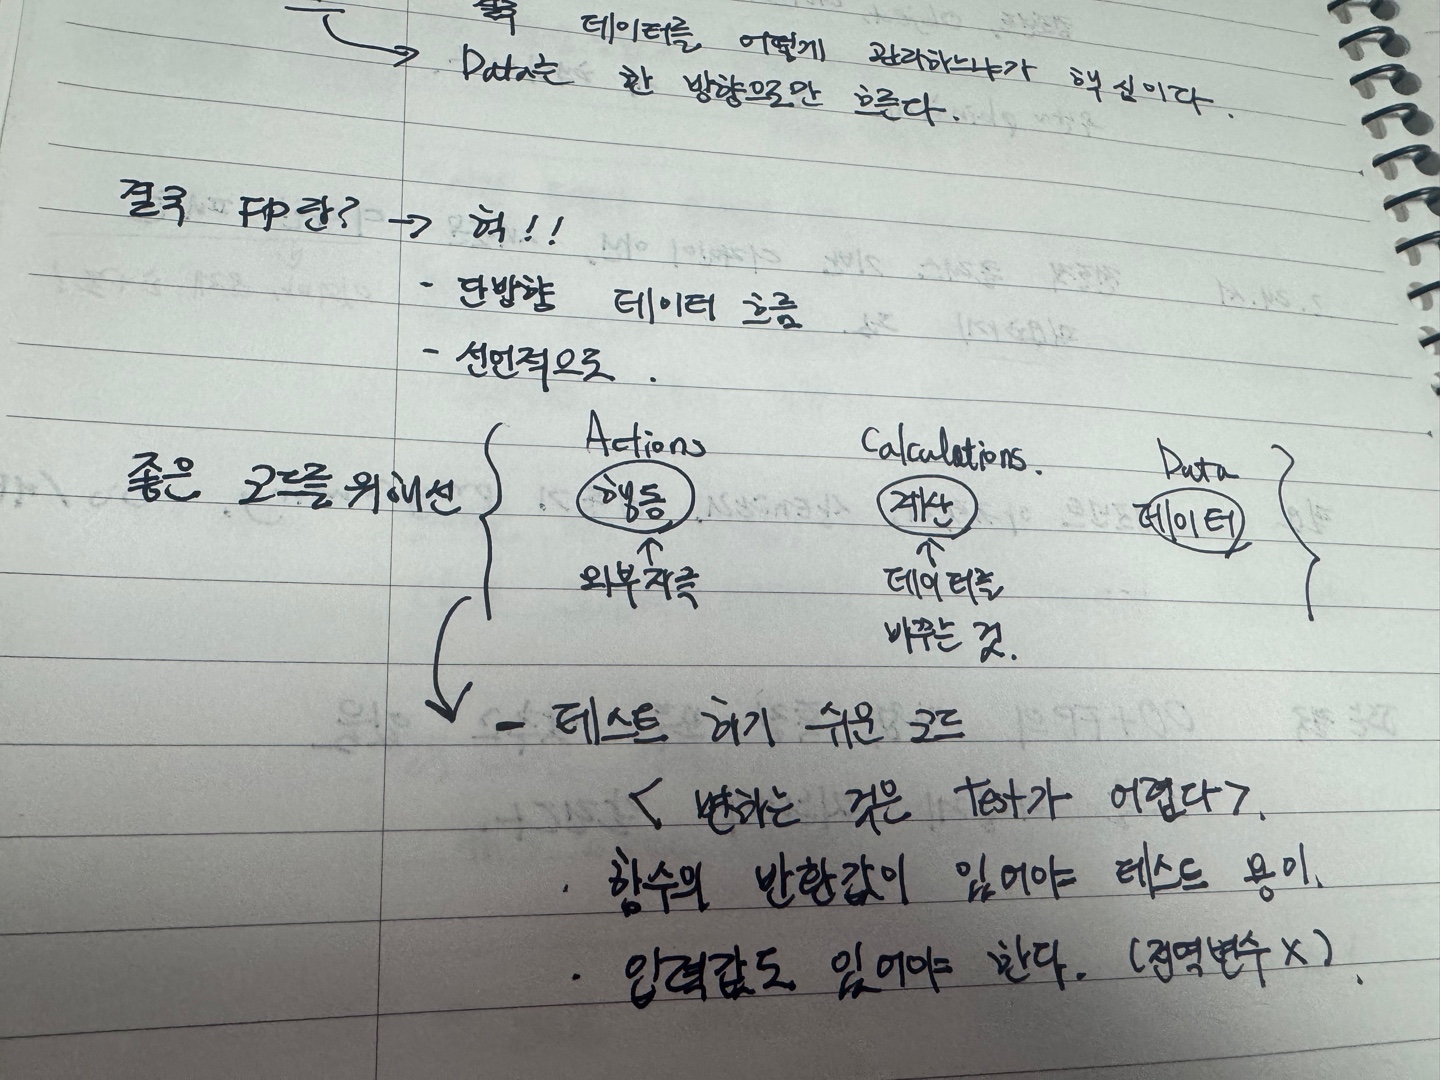 결국 데이터를 어떻게 관리하느냐가 핵심이다.
Data는 한 방향으로만 흐른다.
결국 FP란? → 헉!!
- 단방향 데이터 흐름
- 선언적으로.
Actions Calculations. Data
좋은 코드를 위해선 행동 계산 데이터
외부자극 데이터를
바꾸는 것.
- 테스트 하기 쉬운 코드
< 변하는 것은 test가 어렵다>.
· 함수의 반환값이 있어야 테스트 용이.
· 입력값도 있어야 한다. (전역변수 X).